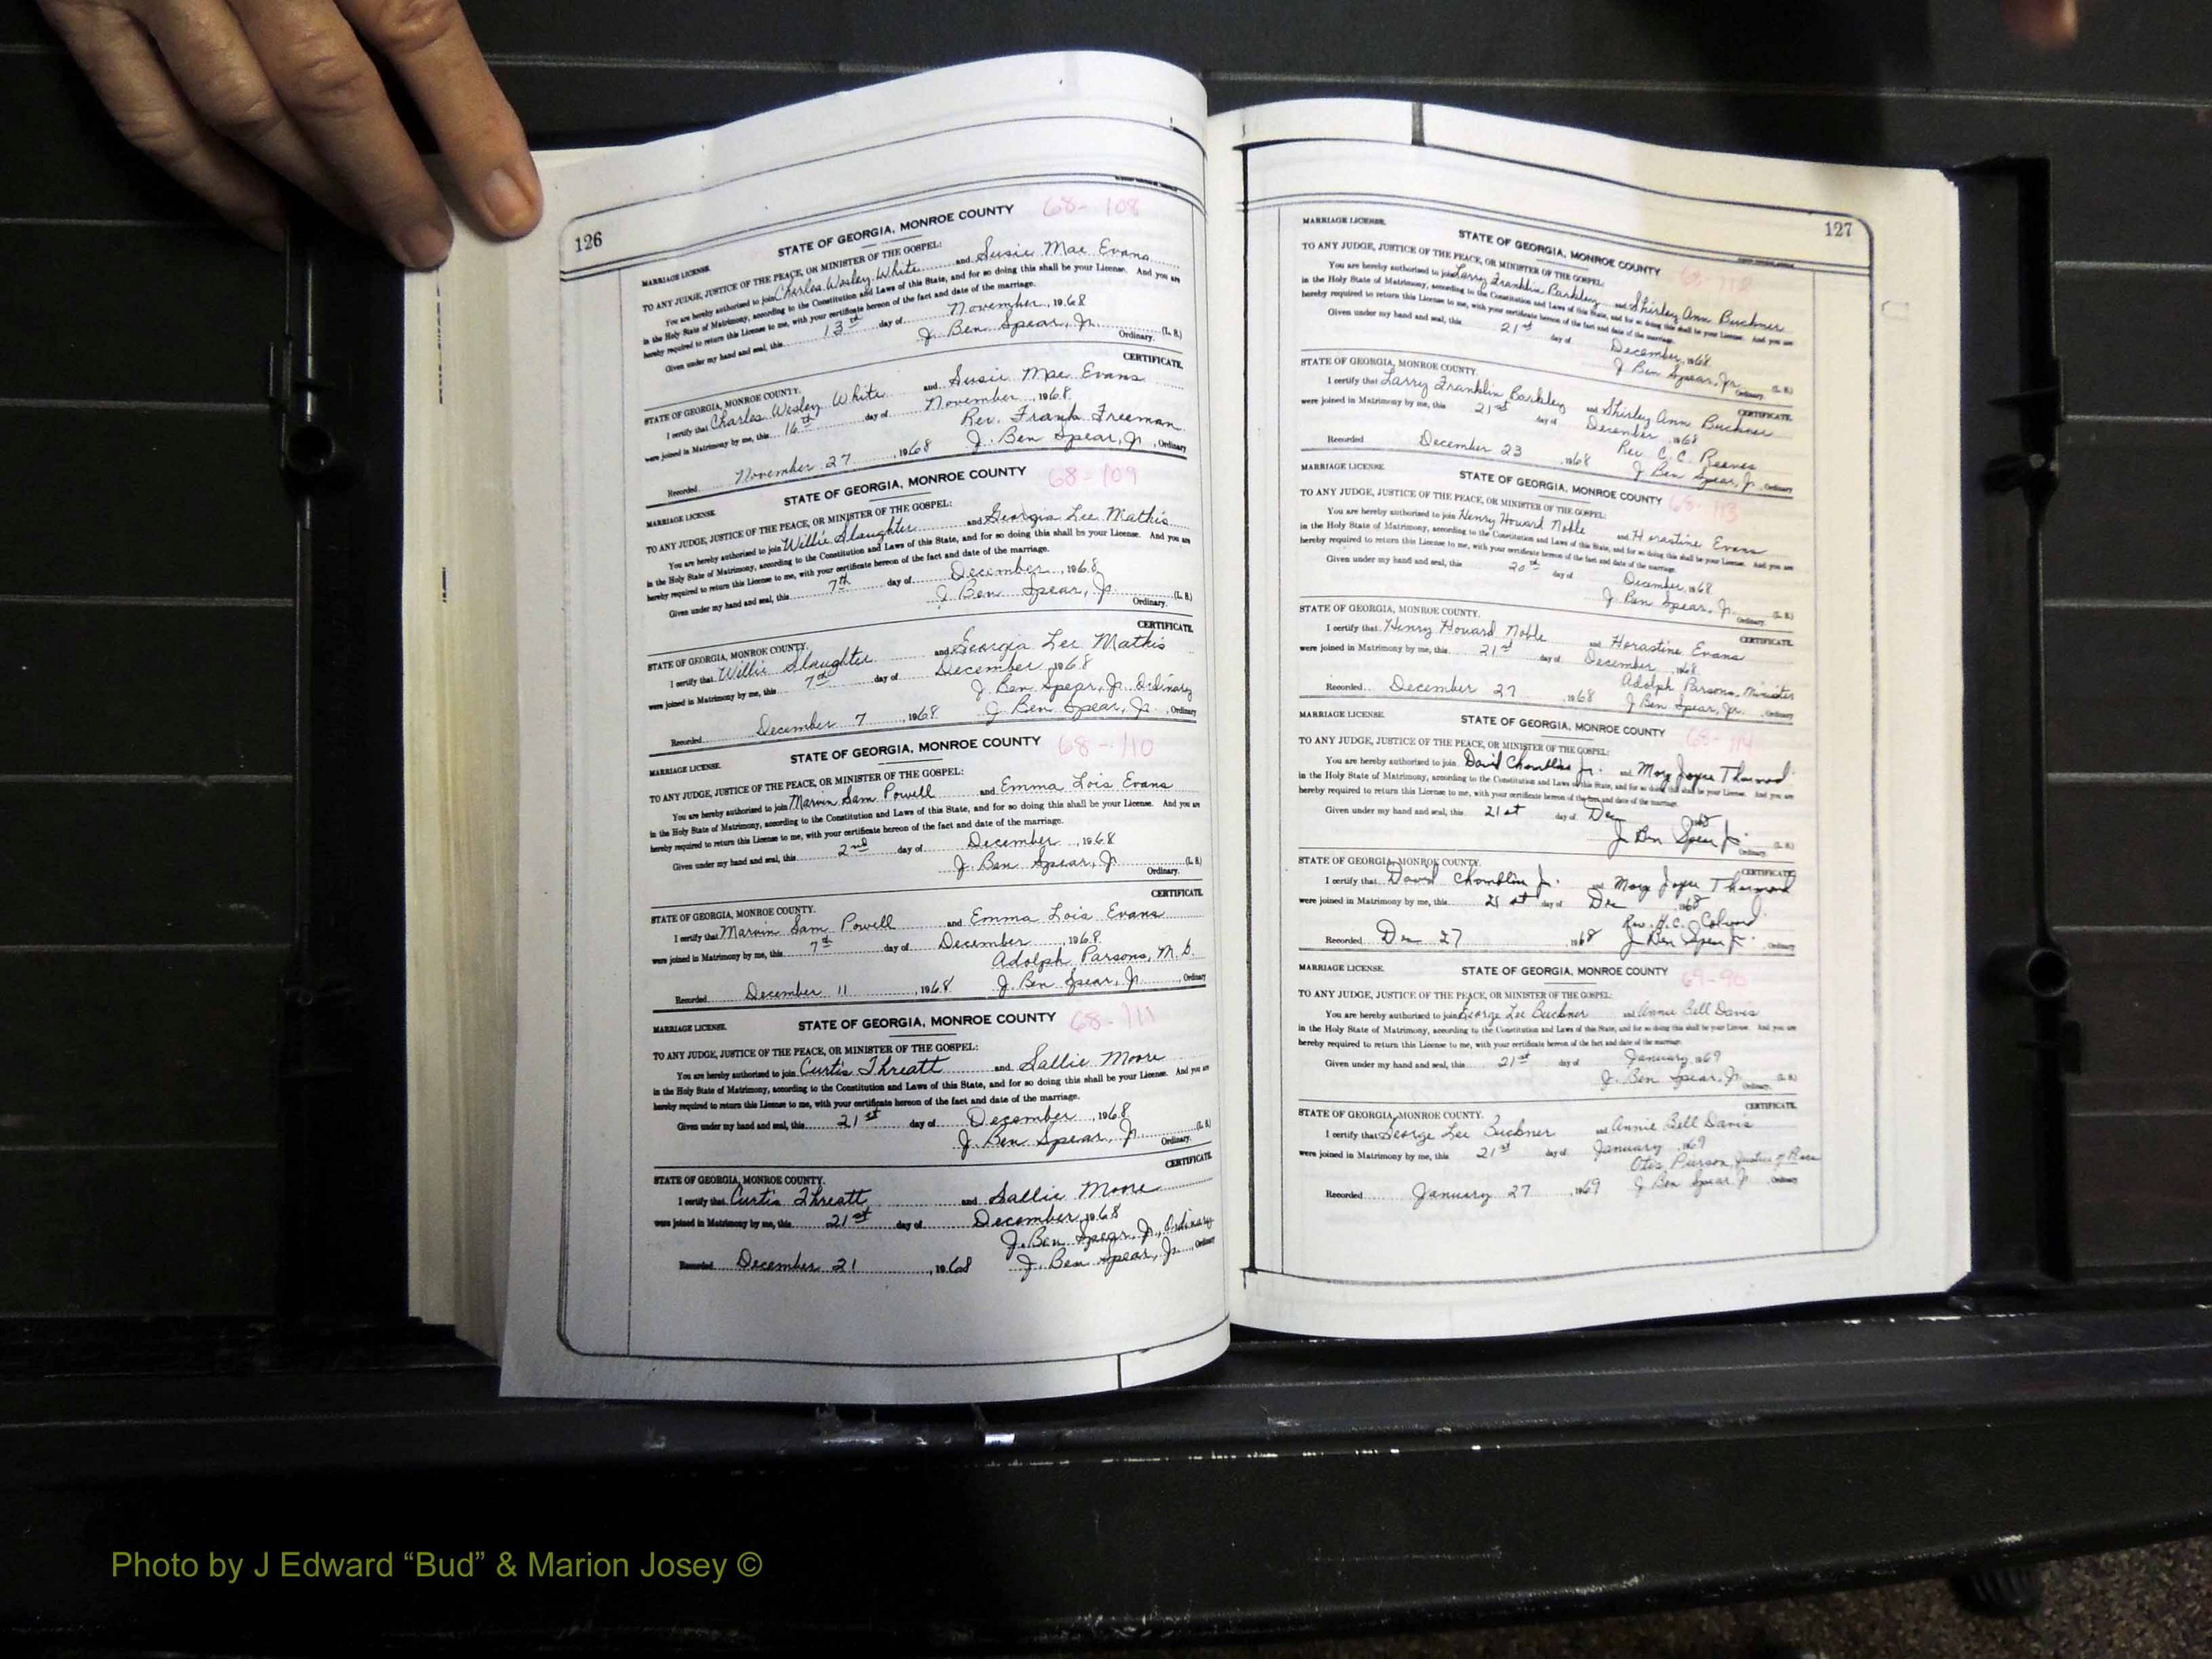 126
STATE OF GEORGIA, MONROE COUNTY 68-108
MARRIAGE LICENSE.
TO ANY JUDGE, JUSTICE OF THE PEACE, OR MINISTER OF THE GOSPEL:
You are hereby authorized to join Charles Wesley White and Susie Mae Evans
in the Holy State of Matrimony, according to the Constitution and Laws of this State, and for so doing this shall be your License. And you are
hereby required to return this License to me, with your certificate hereon of the fact and date of the marriage.
Given under my hand and seal, this 13th day of November, 1968
J. Ben Spear, Jr. (L. S.)
Ordinary.
CERTIFICATE.
STATE OF GEORGIA, MONROE COUNTY.
I certify that Charles Wesley White and Susie Mae Evans
were joined in Matrimony by me, this 16th day of November, 1968.
Rev. Frank Freeman
Recorded November 27, 1968 J. Ben Spear, Jr., Ordinary
STATE OF GEORGIA, MONROE COUNTY 68-109
MARRIAGE LICENSE.
TO ANY JUDGE, JUSTICE OF THE PEACE, OR MINISTER OF THE GOSPEL:
You are hereby authorized to join Willie Slaughter and Georgia Lee Mathis
in the Holy State of Matrimony, according to the Constitution and Laws of this State, and for so doing this shall be your License. And you are
hereby required to return this License to me, with your certificate hereon of the fact and date of the marriage.
Given under my hand and seal, this 7th day of December, 1968
J. Ben Spear, Jr. (L. S.)
Ordinary.
CERTIFICATE.
STATE OF GEORGIA, MONROE COUNTY.
I certify that Willie Slaughter and Georgia Lee Mathis
were joined in Matrimony by me, this 7th day of December, 1968
J. Ben Spear, Jr. Ordinary
Recorded December 7, 1968 J. Ben Spear, Jr., Ordinary
STATE OF GEORGIA, MONROE COUNTY 68-110
MARRIAGE LICENSE.
TO ANY JUDGE, JUSTICE OF THE PEACE, OR MINISTER OF THE GOSPEL:
You are hereby authorized to join Marvin Sam Powell and Emma Lois Evans
in the Holy State of Matrimony, according to the Constitution and Laws of this State, and for so doing this shall be your License. And you are
hereby required to return this License to me, with your certificate hereon of the fact and date of the marriage.
Given under my hand and seal, this 2nd day of December, 1968
J. Ben Spear, Jr. (L. S.)
Ordinary.
CERTIFICATE.
STATE OF GEORGIA, MONROE COUNTY.
I certify that Marvin Sam Powell and Emma Lois Evans
were joined in Matrimony by me, this 7th day of December, 1968.
Adolph Parsons, M.G.
Recorded December 11, 1968 J. Ben Spear, Jr., Ordinary
MARRIAGE LICENSE. STATE OF GEORGIA, MONROE COUNTY 68-111
TO ANY JUDGE, JUSTICE OF THE PEACE, OR MINISTER OF THE GOSPEL:
You are hereby authorized to join Curtis Threatt and Sallie Moore
in the Holy State of Matrimony, according to the Constitution and Laws of this State, and for so doing this shall be your License. And you are
hereby required to return this License to me, with your certificate hereon of the fact and date of the marriage.
Given under my hand and seal, this 21st day of December, 1968
J. Ben Spear, Jr. (L. S.)
Ordinary.
CERTIFICATE.
STATE OF GEORGIA, MONROE COUNTY.
I certify that Curtis Threatt and Sallie Moore
were joined in Matrimony by me, this 21st day of December, 1968
J. Ben Spear, Jr., Ordinary
Recorded December 21, 1968 J. Ben Spear, Jr., Ordinary
127
MARRIAGE LICENSE. STATE OF GEORGIA, MONROE COUNTY 68-112
TO ANY JUDGE, JUSTICE OF THE PEACE, OR MINISTER OF THE GOSPEL:
You are hereby authorized to join Larry Franklin Barkley and Shirley Ann Buckner
in the Holy State of Matrimony, according to the Constitution and Laws of this State, and for so doing this shall be your License. And you are
hereby required to return this License to me, with your certificate hereon of the fact and date of the marriage.
Given under my hand and seal, this 21st day of December, 1968.
J. Ben Spear, Jr. (L. S.)
Ordinary.
CERTIFICATE.
STATE OF GEORGIA, MONROE COUNTY.
I certify that Larry Franklin Barkley and Shirley Ann Buckner
were joined in Matrimony by me, this 21st day of December, 1968
Rev. C. C. Reaves
Recorded December 23, 1968 J. Ben Spear, Jr. Ordinary
MARRIAGE LICENSE. STATE OF GEORGIA, MONROE COUNTY 68-113
TO ANY JUDGE, JUSTICE OF THE PEACE, OR MINISTER OF THE GOSPEL:
You are hereby authorized to join Henry Howard Noble and Horastine Evans
in the Holy State of Matrimony, according to the Constitution and Laws of this State, and for so doing this shall be your License. And you are
hereby required to return this License to me, with your certificate hereon of the fact and date of the marriage.
Given under my hand and seal, this 20th day of December, 1968
J. Ben Spear, Jr. (L. S.)
Ordinary.
CERTIFICATE.
STATE OF GEORGIA, MONROE COUNTY.
I certify that Henry Howard Noble and Horastine Evans
were joined in Matrimony by me, this 21st day of December, 1968
Adolph Parsons, Minister
Recorded December 27, 1968 J. Ben Spear, Jr. Ordinary
MARRIAGE LICENSE. STATE OF GEORGIA, MONROE COUNTY 68-114
TO ANY JUDGE, JUSTICE OF THE PEACE, OR MINISTER OF THE GOSPEL:
You are hereby authorized to join David Chambliss Jr. and Mary Joyce Thurmond
in the Holy State of Matrimony, according to the Constitution and Laws of this State, and for so doing this shall be your License. And you are
hereby required to return this License to me, with your certificate hereon of the fact and date of the marriage.
Given under my hand and seal, this 21st day of Dec 1968
J. Ben Spear Jr. (L. S.)
Ordinary.
CERTIFICATE.
STATE OF GEORGIA, MONROE COUNTY.
I certify that David Chambliss Jr. and Mary Joyce Thurmond
were joined in Matrimony by me, this 21st day of Dec 1968
Rev. H.C.
Recorded Dec 27, 1968 J. Ben Spear Jr. Ordinary
MARRIAGE LICENSE. STATE OF GEORGIA, MONROE COUNTY 69-90
TO ANY JUDGE, JUSTICE OF THE PEACE, OR MINISTER OF THE GOSPEL:
You are hereby authorized to join George Lee Buckner and Annie Bell Davis
in the Holy State of Matrimony, according to the Constitution and Laws of this State, and for so doing this shall be your License. And you are
hereby required to return this License to me, with your certificate hereon of the fact and date of the marriage.
Given under my hand and seal, this 21st day of January, 1969
J. Ben Spear, Jr. (L. S.)
Ordinary.
CERTIFICATE.
STATE OF GEORGIA, MONROE COUNTY.
I certify that George Lee Buckner and Annie Bell Davis
were joined in Matrimony by me, this 21st day of January, 1969
Otis Pierson, Justice of Peace
Recorded January 27, 1969 J. Ben Spear Jr. Ordinary
Photo by J Edward “Bud” & Marion Josey ©